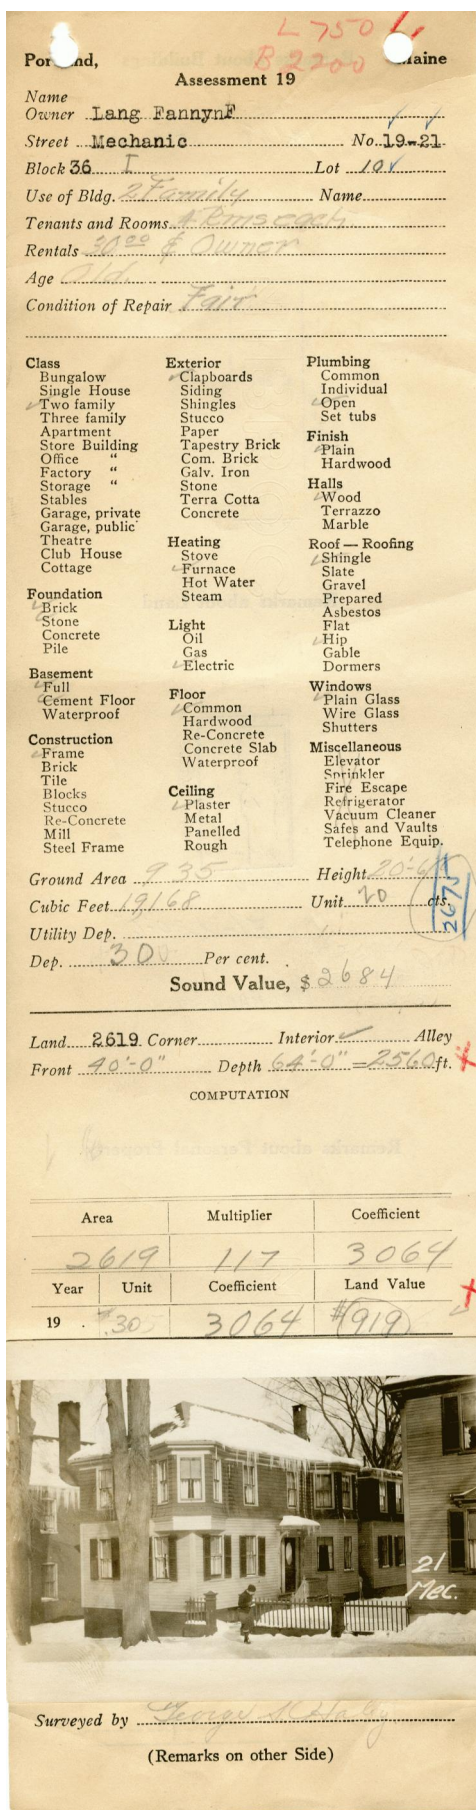 L 750
B 2200
Portland, Maine
Assessment 19
Name
Owner Lang FannynF
Street Mechanic No. 19-21
Block 36 I Lot 10
Use of Bldg. 2 Family Name
Tenants and Rooms 4 Rms each
Rentals 30 00 & Owner
Age Old
Condition of Repair Fair
Class
Bungalow
Single House
Two family
Three family
Apartment
Store Building
Office "
Factory "
Storage "
Stables
Garage, private
Garage, public
Theatre
Club House
Cottage
Foundation
Brick
Stone
Concrete
Pile
Basement
Full
Cement Floor
Waterproof
Construction
Frame
Brick
Tile
Blocks
Stucco
Re-Concrete
Mill
Steel Frame
Exterior
Clapboards
Siding
Shingles
Stucco
Paper
Tapestry Brick
Com. Brick
Galv. Iron
Stone
Terra Cotta
Concrete
Heating
Stove
Furnace
Hot Water
Steam
Light
Oil
Gas
Electric
Floor
Common
Hardwood
Re-Concrete
Concrete Slab
Waterproof
Ceiling
Plaster
Metal
Panelled
Rough
Plumbing
Common
Individual
Open
Set tubs
Finish
Plain
Hardwood
Halls
Wood
Terrazzo
Marble
Roof — Roofing
Shingle
Slate
Gravel
Prepared
Asbestos
Flat
Hip
Gable
Dormers
Windows
Plain Glass
Wire Glass
Shutters
Miscellaneous
Elevator
Sprinkler
Fire Escape
Refrigerator
Vacuum Cleaner
Safes and Vaults
Telephone Equip.
Ground Area 935 Height 20'-6"
Cubic Feet 19,168 Unit 20 cts.
2675
Utility Dep.
Dep. 30 Per cent.
Sound Value, $ 2684
Land 2619 Corner Interior Alley
Front 40'-0" Depth 64'-0" = 2560 ft.
COMPUTATION
Area Multiplier Coefficient
2619 117 3064
Year Unit Coefficient Land Value
19 .30 3064 $919
21
Mec.
Surveyed by George
(Remarks on other Side)